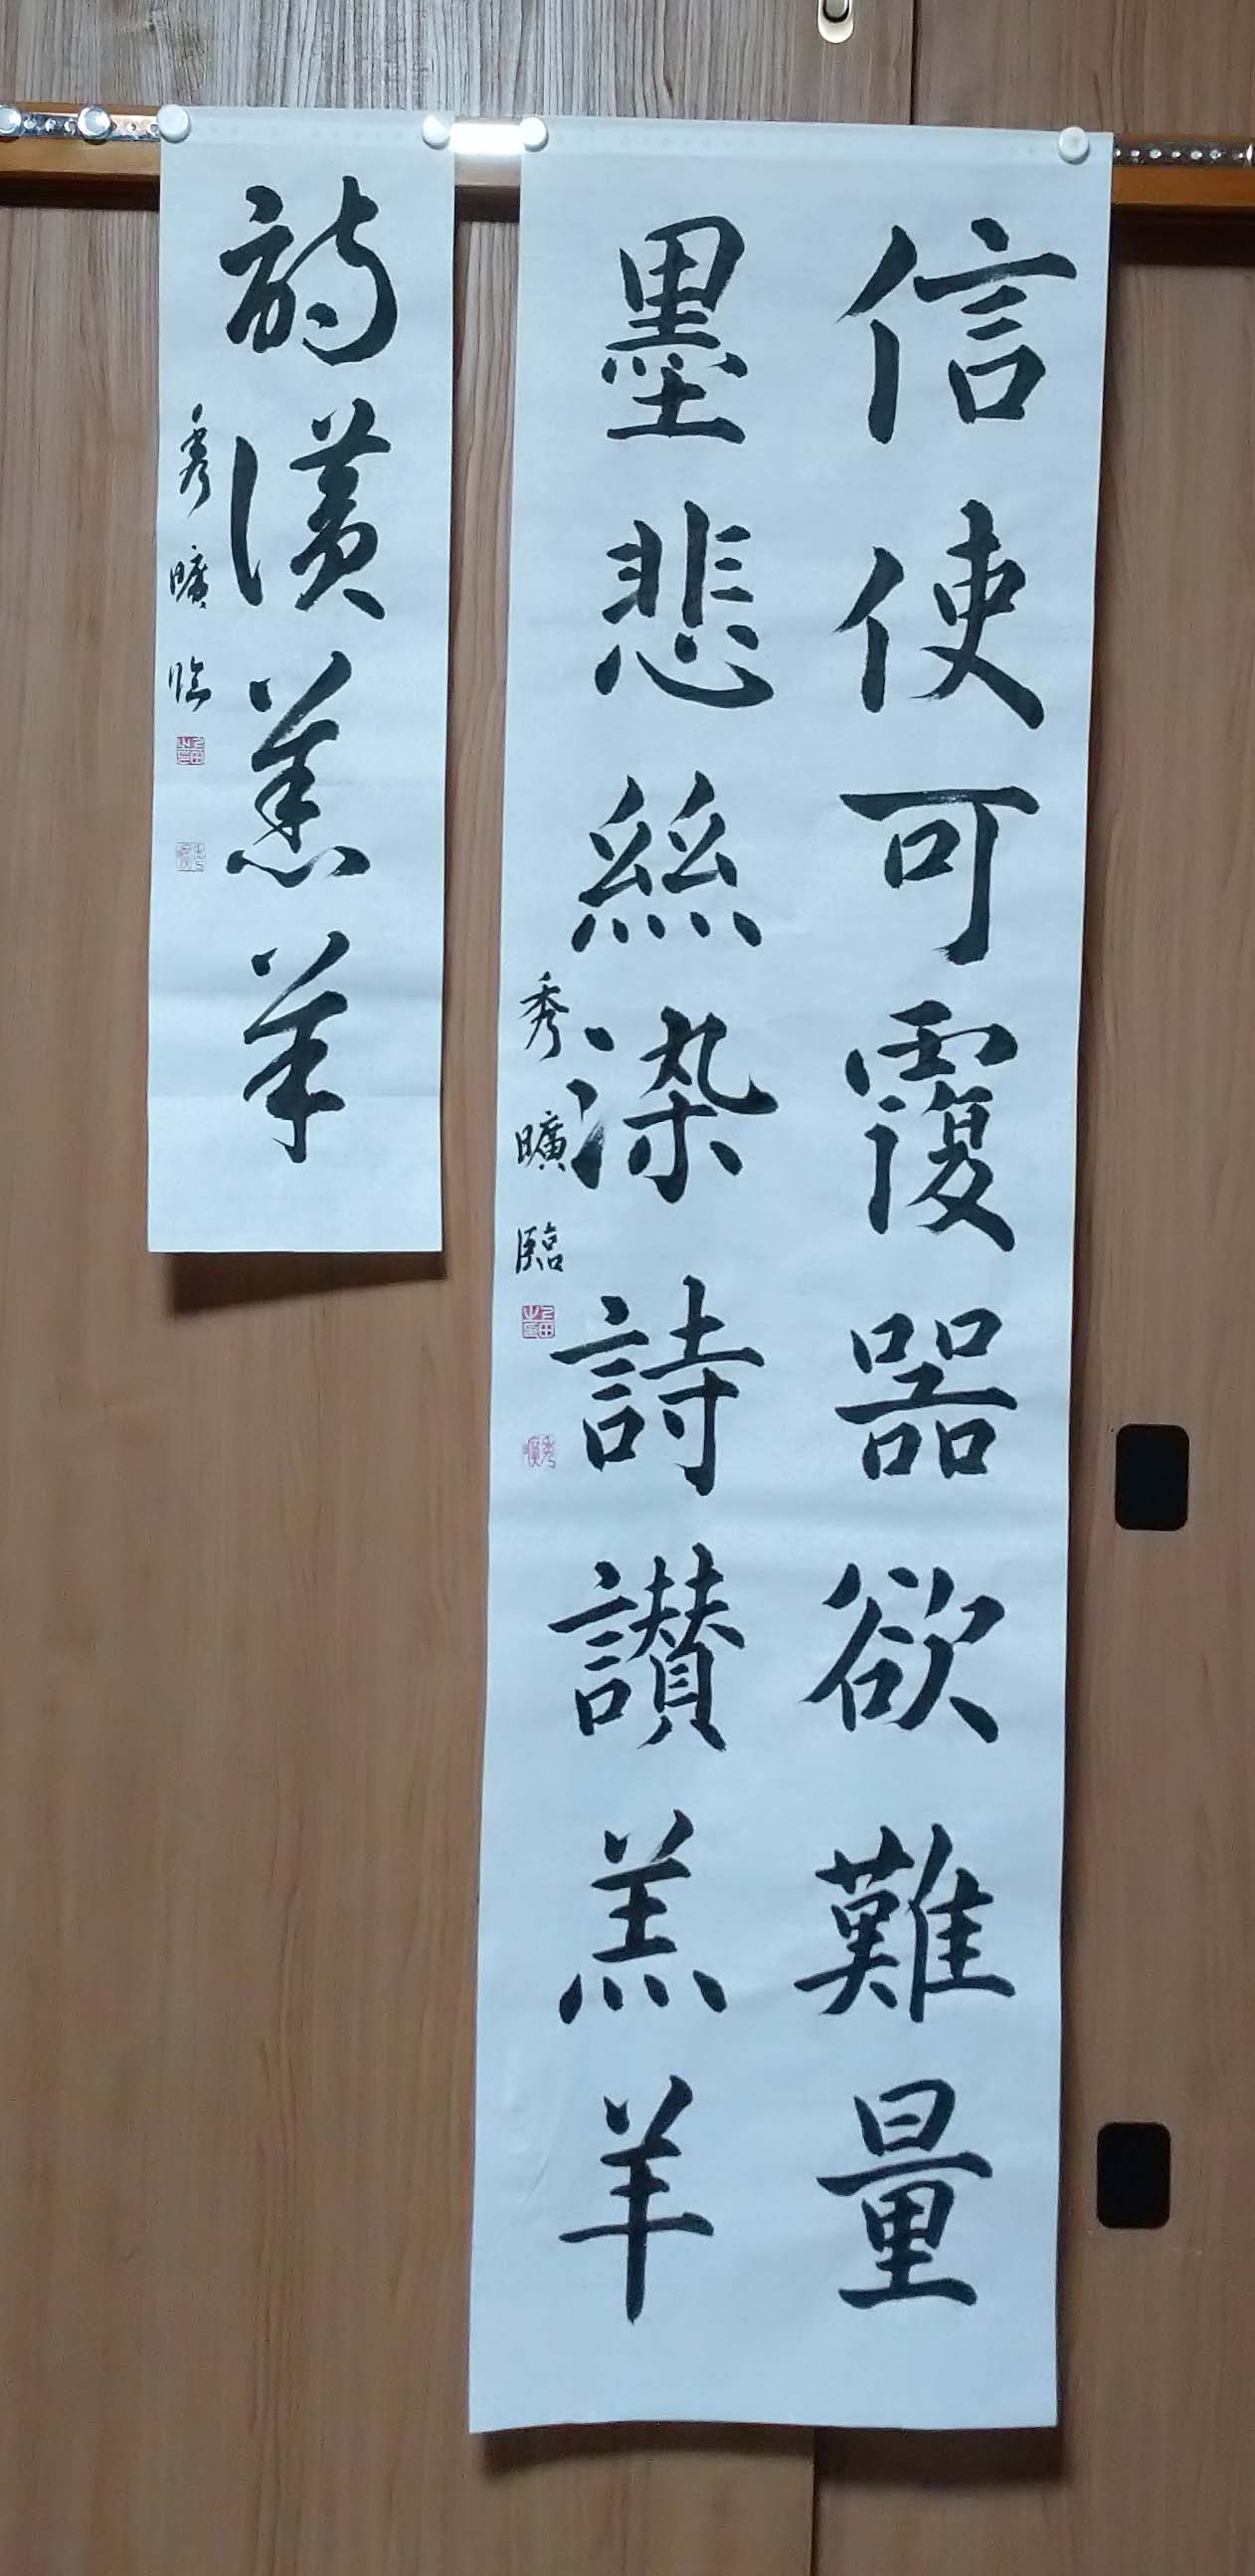 信使可覆器欲難量
墨悲絲染詩讃羔羊
秀曠臨
詩讃羔羊
秀曠臨